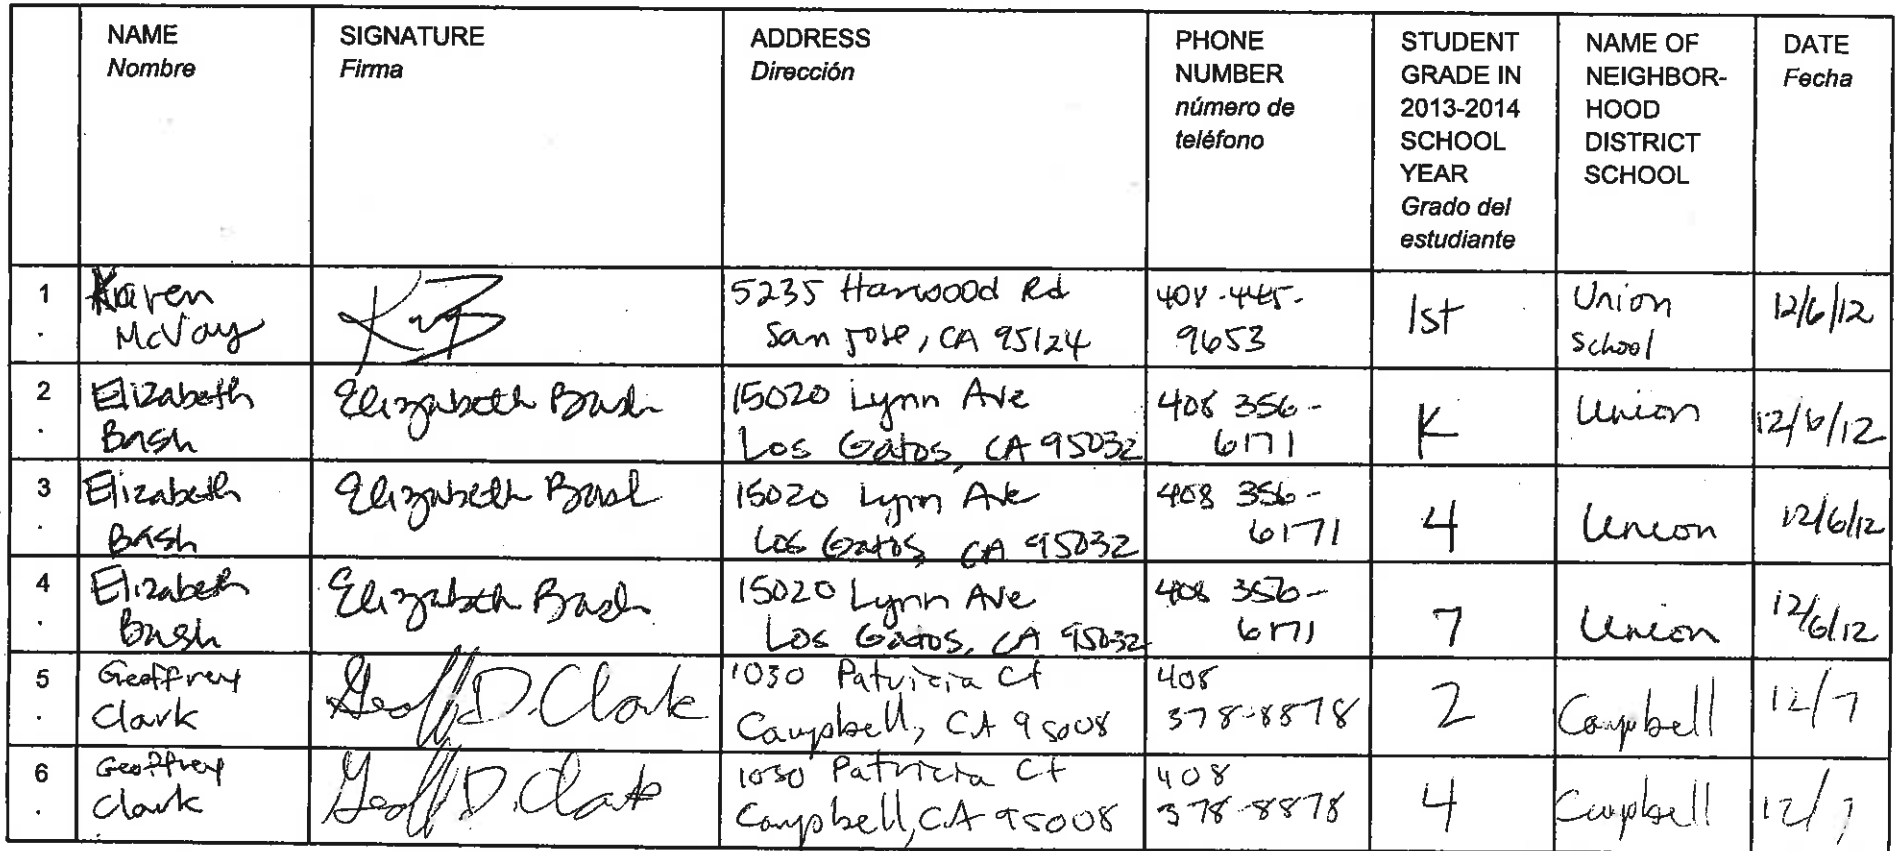 NAME
Nombre
SIGNATURE
Firma
ADDRESS
Dirección
PHONE
NUMBER
número de
teléfono
STUDENT
GRADE IN
2013-2014
SCHOOL
YEAR
Grado del
estudiante
NAME OF
NEIGHBOR-
HOOD
DISTRICT
SCHOOL
DATE
Fecha
1.
Karen
McVay
5235 Harwood Rd
San Jose, CA 95124
408-445-
9653
1st
Union
School
12/6/12
2.
Elizabeth
Bash
Elizabeth Bash
15020 Lynn Ave
Los Gatos, CA 95032
408 356-
6171
K
Union
12/6/12
3.
Elizabeth
Bash
Elizabeth Bash
15020 Lynn Ave
Los Gatos, CA 95032
408 356-
6171
4
Union
12/6/12
4.
Elizabeth
Bash
Elizabeth Bash
15020 Lynn Ave
Los Gatos, CA 95032
408 356-
6171
7
Union
12/6/12
5.
Geoffrey
Clark
Geoff D. Clark
1030 Patricia Ct
Campbell, CA 95008
408
378-8878
2
Campbell
12/7
6.
Geoffrey
Clark
Geoff D. Clark
1030 Patricia Ct
Campbell, CA 95008
408
378-8878
4
Campbell
12/7